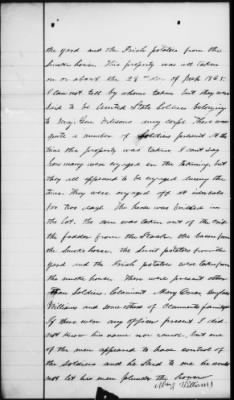 the yard and the Irish potatoes from the
smoke house. This property was all taken
on or about the 28th day of Feb 1865.
I can not tell by whom taken but they were
said to be United State Soldiers belonging
to Maj. Gen army corps. There were
quite a number of Soldiers present at the
time this property was taken. I can't say
how many were engaged in the taking, but
they all appeared to be engaged during the
time. They were engaged off at intervals
for two days. The horse was bridled in
the lot. The corn was taken out of the crib
the fodder from the Stack the bacon from
the smoke house. The Sweet potatoes from the
yard and the Irish potatoes were taken from
the smoke house. There were present other
than Soldiers Claimant Mary
Williams and some others of Claimants family
If there were any officer present I did
not know his name nor rank, but one
of the men appeared to have control of
the Soldiers and he said to me he would
not let his men plunder the house
Mary Williams